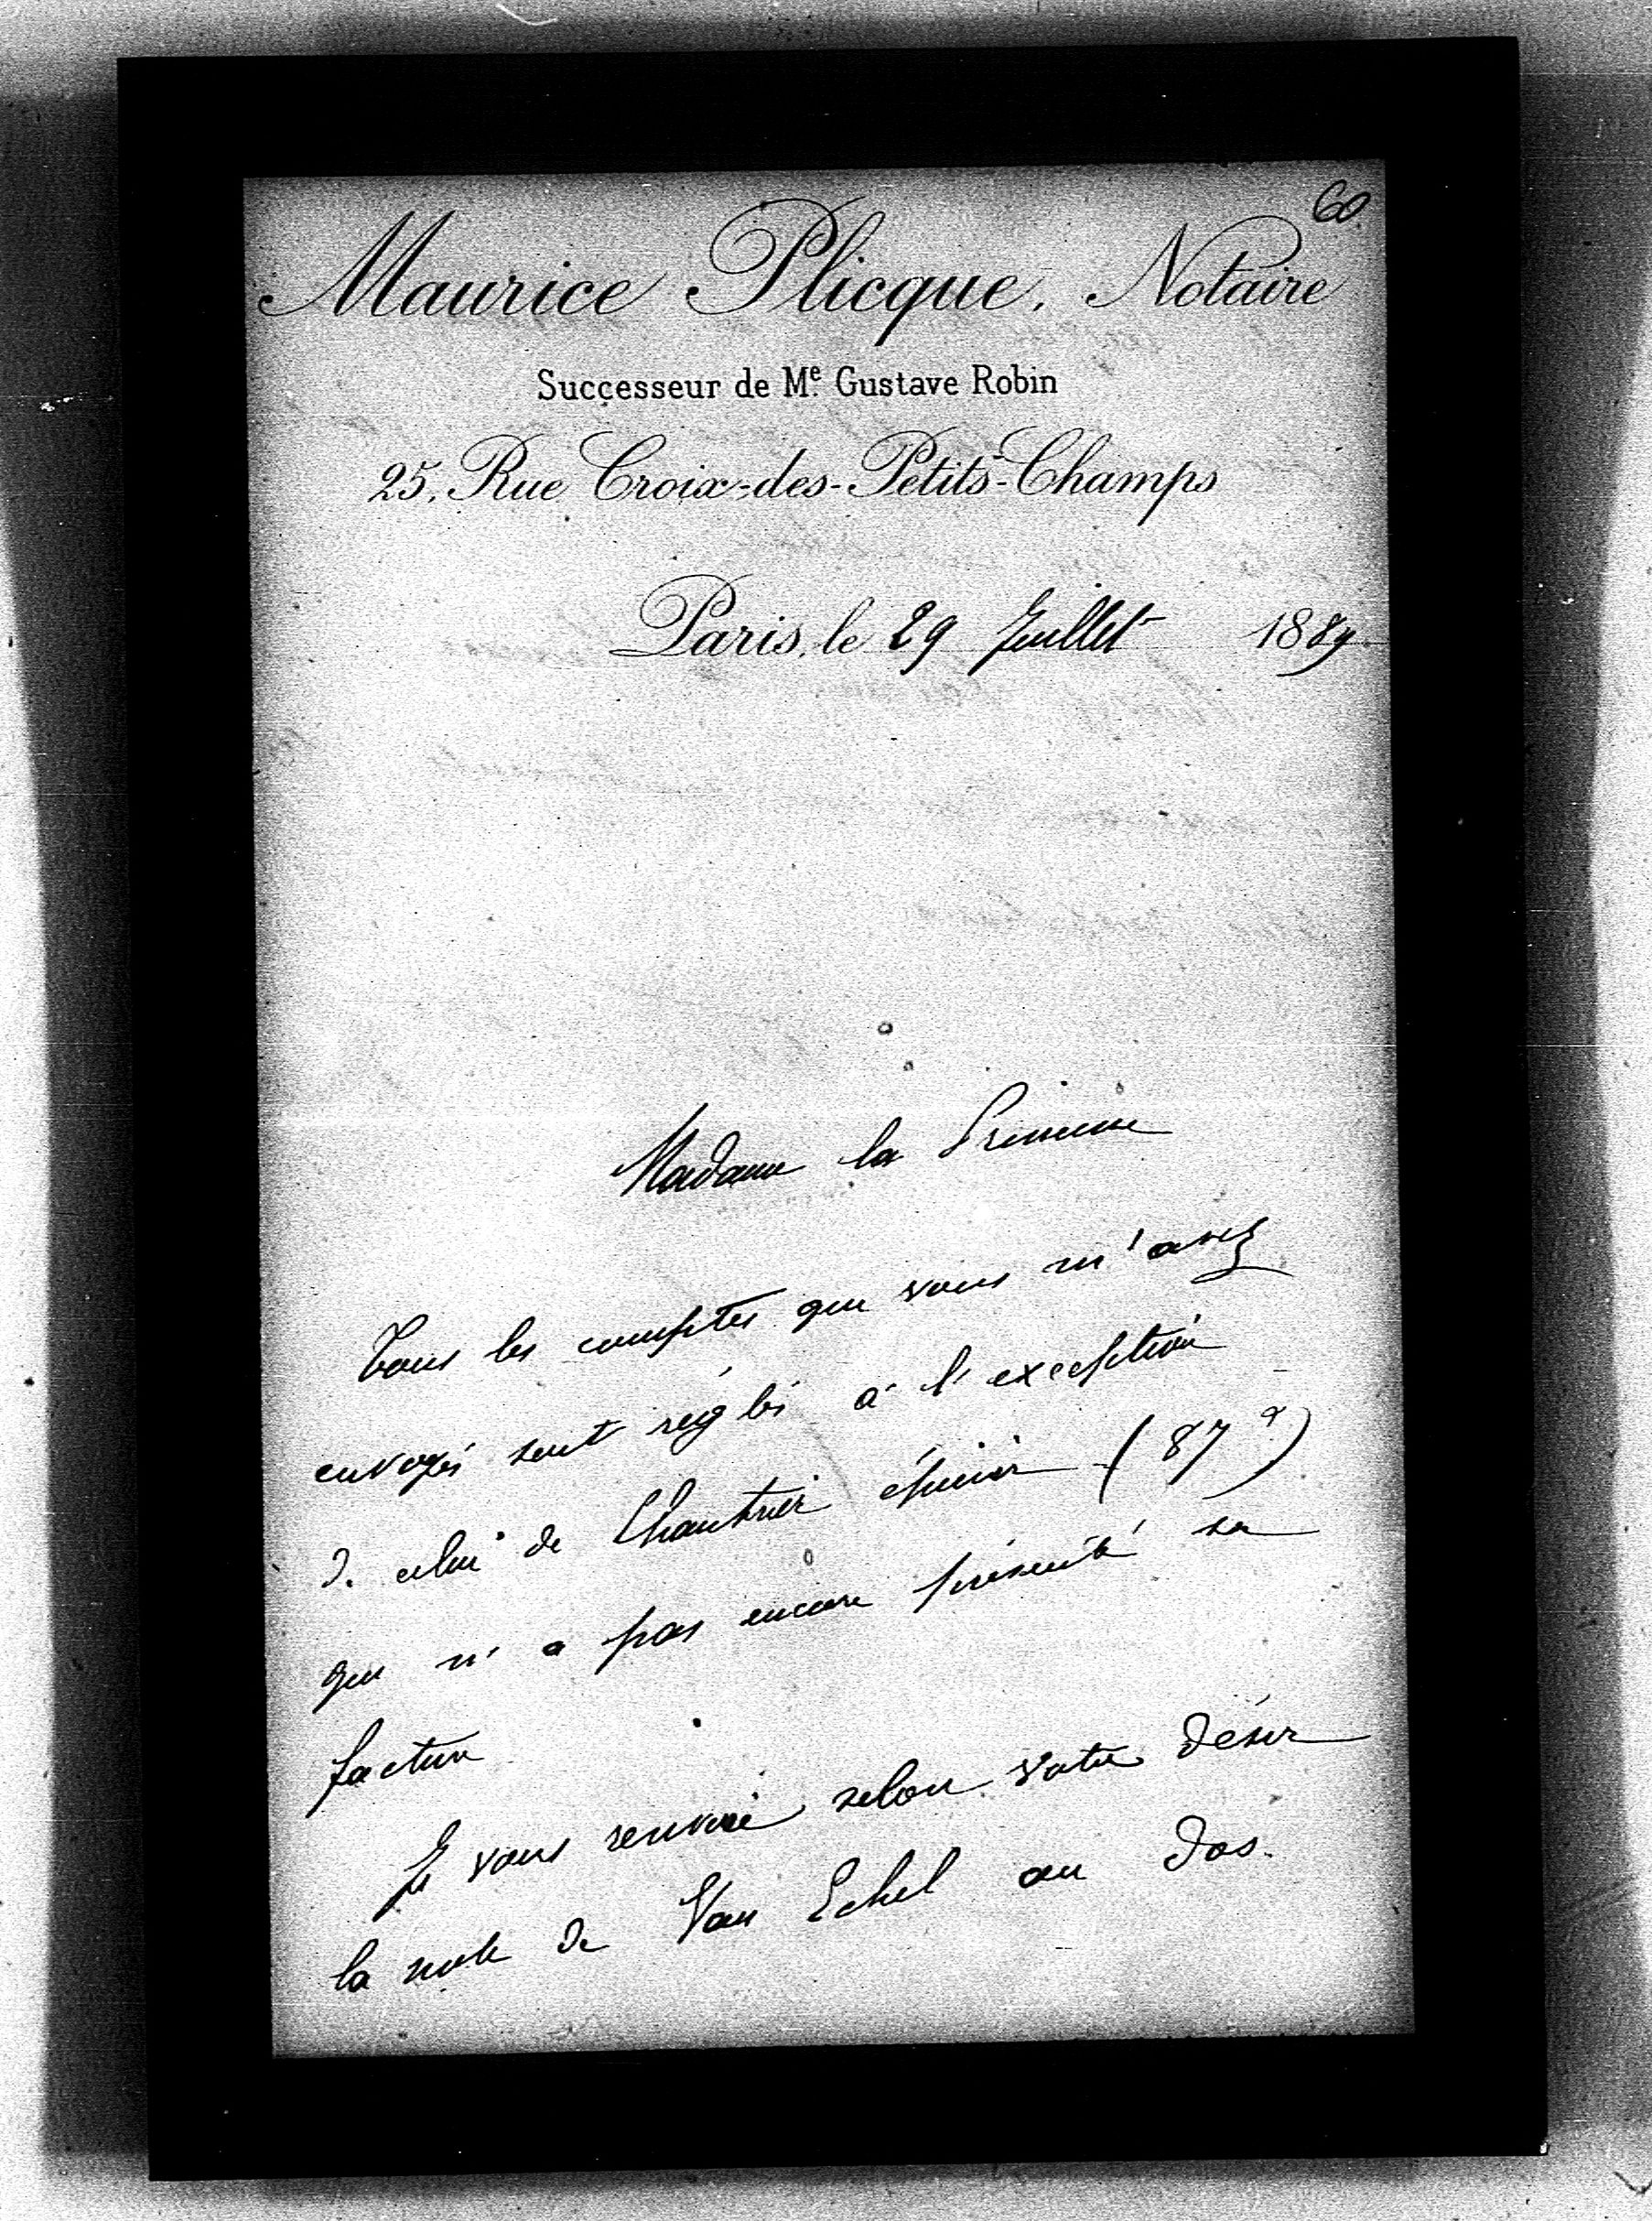 60
Maurice Plicque, Notaire
Successeur de Mᵉ Gustave Robin
25, Rue Croix-des-Petits-Champs
Paris, le 29 Juillet 1889
Madame la Princesse
Tous les comptes que vous m'avez
envoyés sont réglés à l'exception
de celui de Chantrier épicier (87 )
qui n'a pas encore présenté sa
facture
Je vous renvoie selon votre désir
la note de Van Eckel au dos.